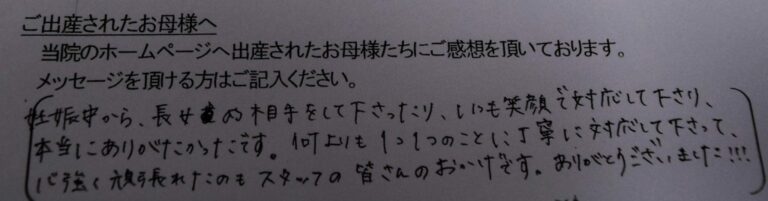 ご出産されたお母様へ
当院のホームページへ出産されたお母様たちにご感想を頂いております。
メッセージを頂ける方はご記入ください。
妊娠中から、長女の相手をして下さったり、いつも笑顔で対応して下さり、
本当にありがたかったです。何よりも1つ1つのことに丁寧に対応して下さって、
心強く頑張れたのもスタッフの皆さんのおかげです。ありがとうございました!!!